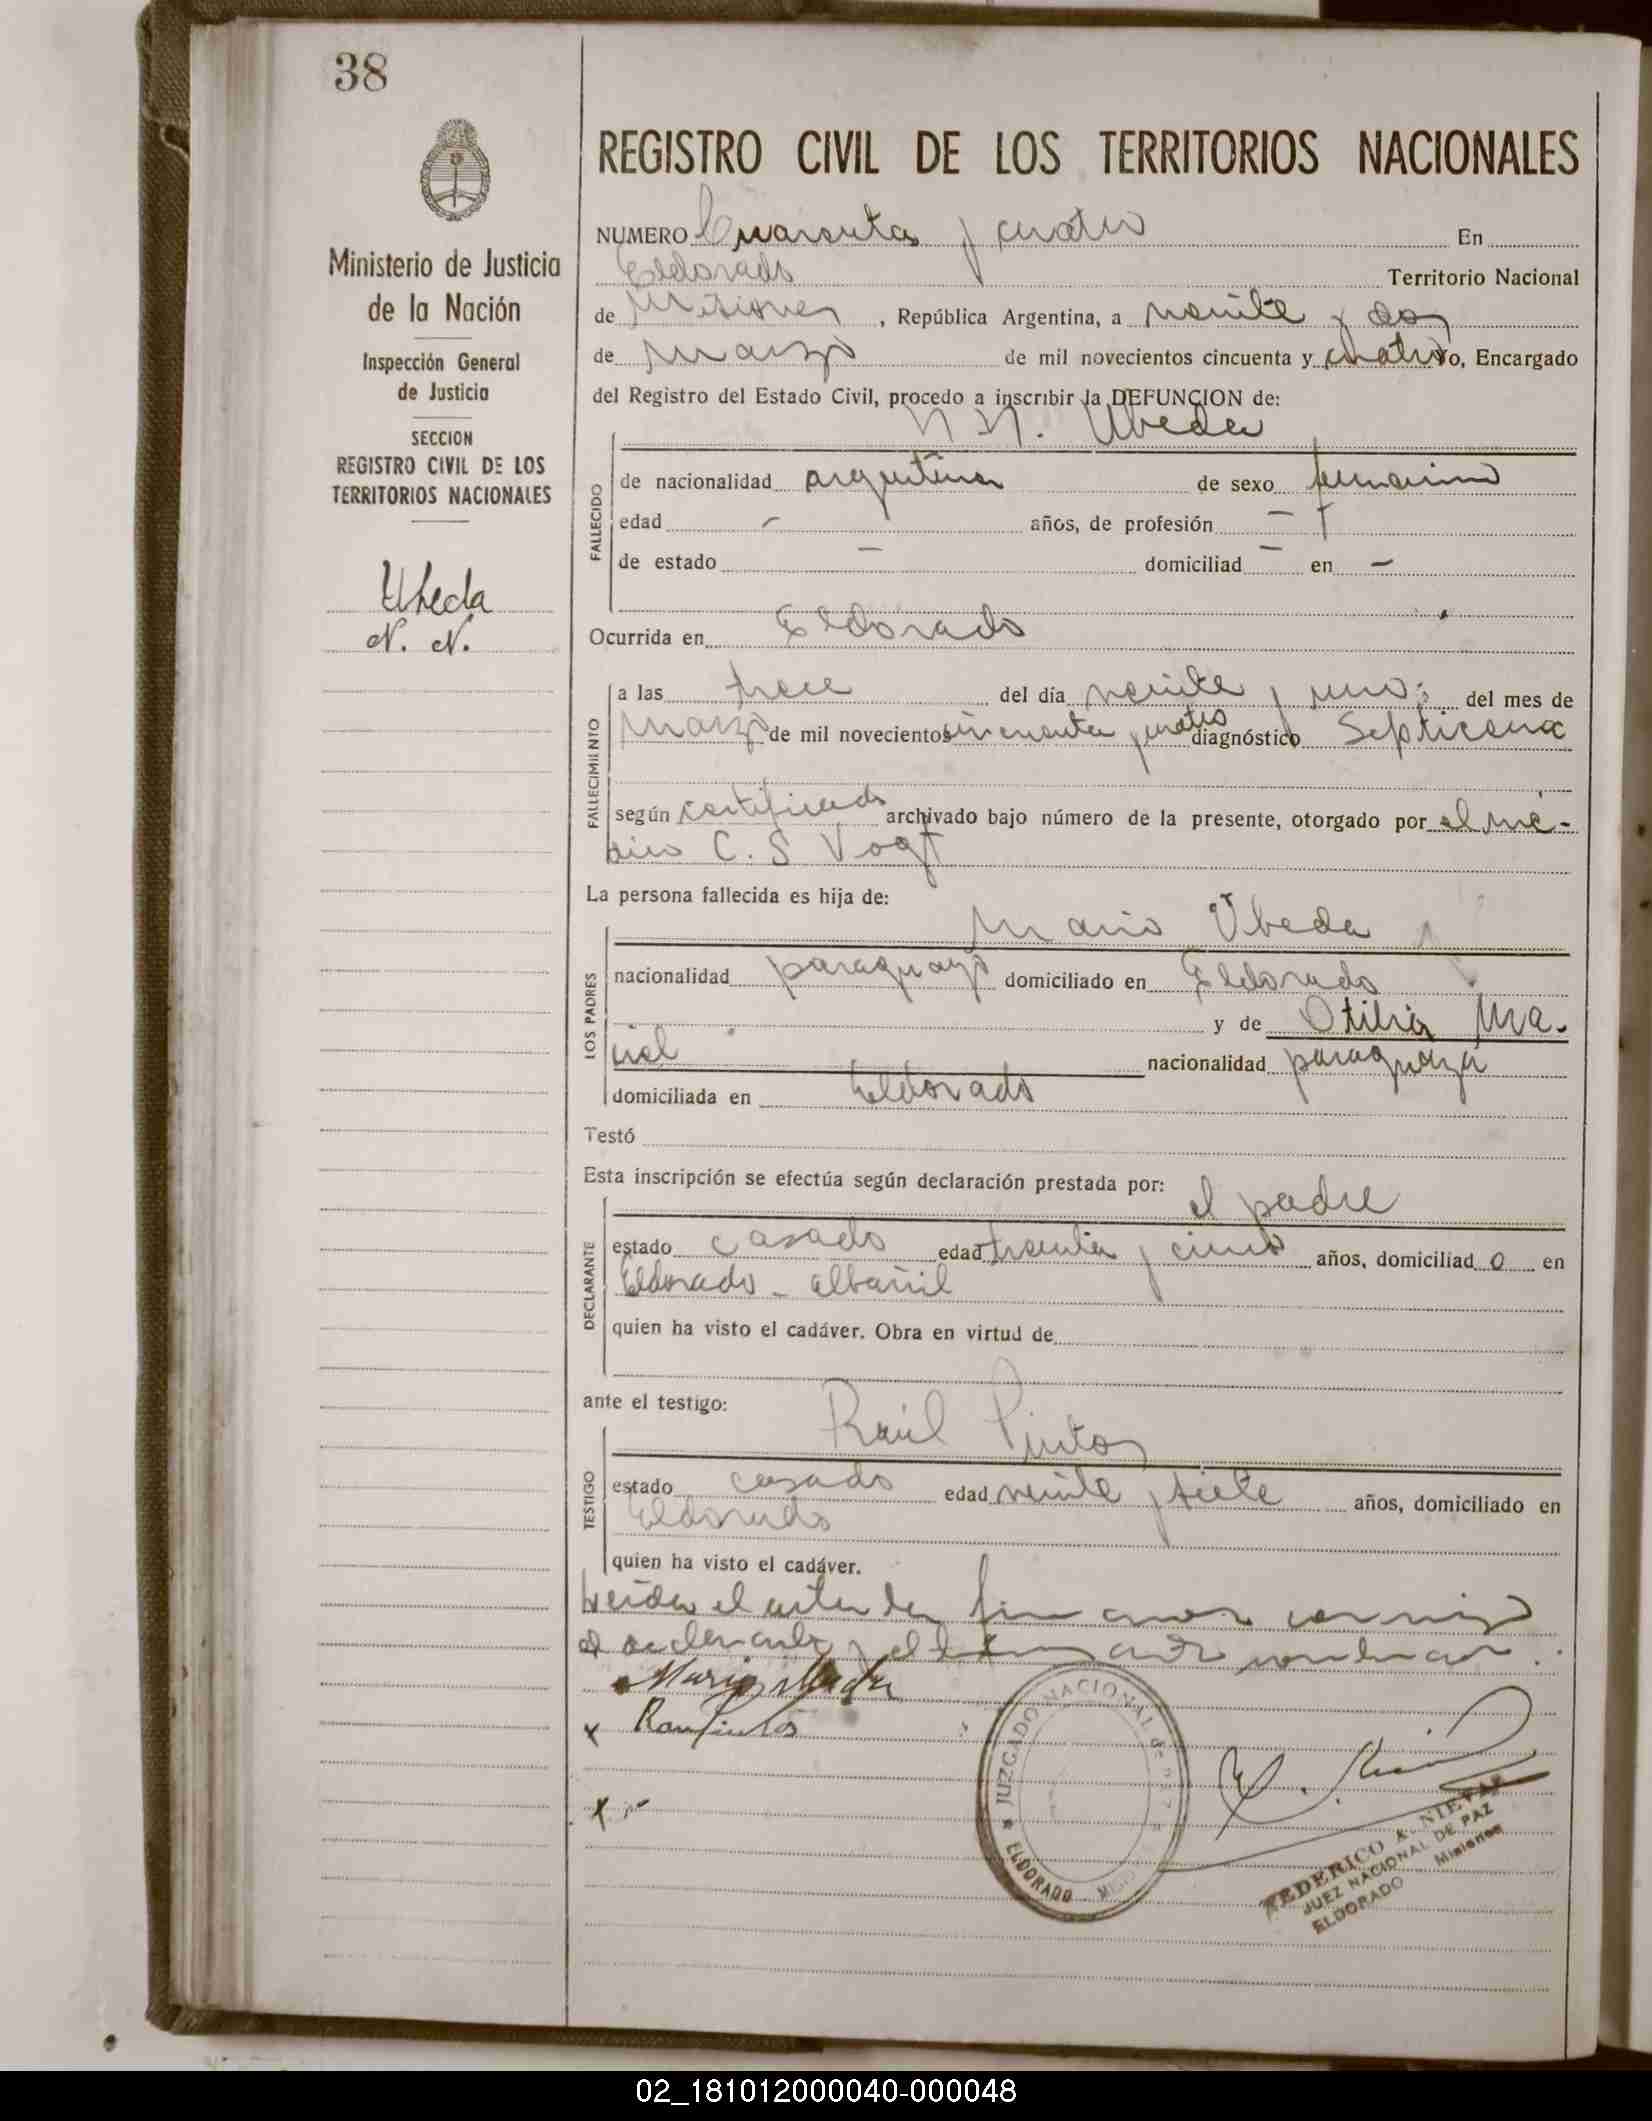 38
Ministerio de Justicia
de la Nación
Inspección General
de Justicia
SECCION
REGISTRO CIVIL DE LOS
TERRITORIOS NACIONALES
Ubeda
N. N.
REGISTRO CIVIL DE LOS TERRITORIOS NACIONALES
NUMERO Cuarenta y cuatro En
Eldorado Territorio Nacional
de Misiones, República Argentina, a veinte y dos
de marzo de mil novecientos cincuenta y cuatro yo, Encargado
del Registro del Estado Civil, procedo a inscribir la DEFUNCION de:
N N. Ubeda
FALLECIDO
de nacionalidad argentina de sexo femenino
edad - años, de profesión -
de estado - domiciliad - en -
Ocurrida en Eldorado
FALLECIMIENTO
a las trece del día veinte y uno del mes de
marzo de mil novecientos cincuenta y cuatro diagnóstico Septicemia
según certificado archivado bajo número de la presente, otorgado por el mé-
dico C. S Vogt
La persona fallecida es hija de:
Mario Ubeda
LOS PADRES
nacionalidad paraguayo domiciliado en Eldorado
y de Otilia Ma-
ciel nacionalidad paraguaya
domiciliada en Eldorado
Testó
Esta inscripción se efectúa según declaración prestada por: el padre
DECLARANTE
estado casado edad treinta y cinco años, domiciliad o en
Eldorado - albañil
quien ha visto el cadáver. Obra en virtud de
ante el testigo:
Raúl Pintos
TESTIGO
estado casado edad veinte y siete años, domiciliado en
Eldorado
quien ha visto el cadáver.
Leída el acta la firmaron conmigo
el declarante y el testigo
Mario Ubeda
x Raul Pintos
x
JUZGADO NACIONAL de PAZ
ELDORADO
FEDERICO A. NIEVAS
JUEZ NACIONAL DE PAZ
ELDORADO - Misiones
02_181012000040-000048